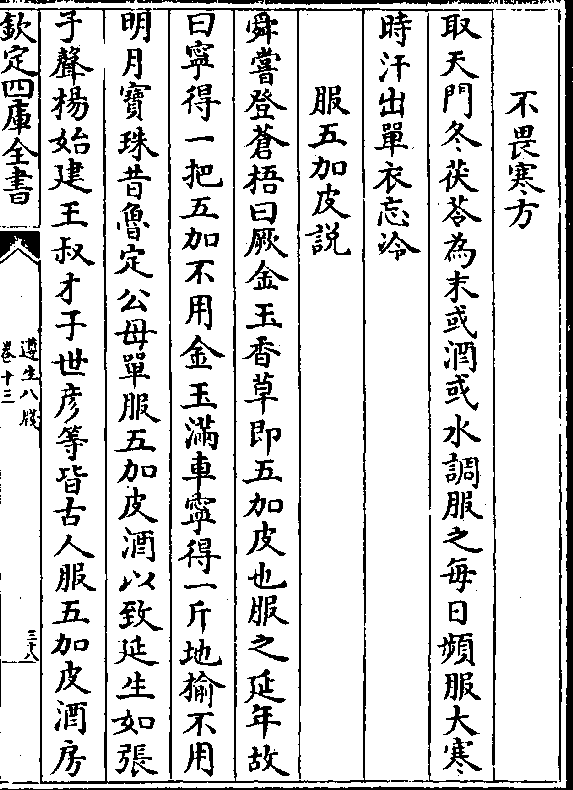 不畏寒方
取天門冬茯苓為末或酒或水調服之每日頻服大寒
時汗出單衣忘冷
服五加皮説
舜嘗登蒼梧曰厥金玉香草即五加皮也服之延年故
曰寧得一把五加不用金玉滿車寧得一斤地榆不用
明月寶珠昔魯定公母單服五加皮酒以致延生如張
子聲楊始建王叔才子世彦等皆古人服五加皮酒房
欽定四庫全書
遵生八牋
卷十三
三十八